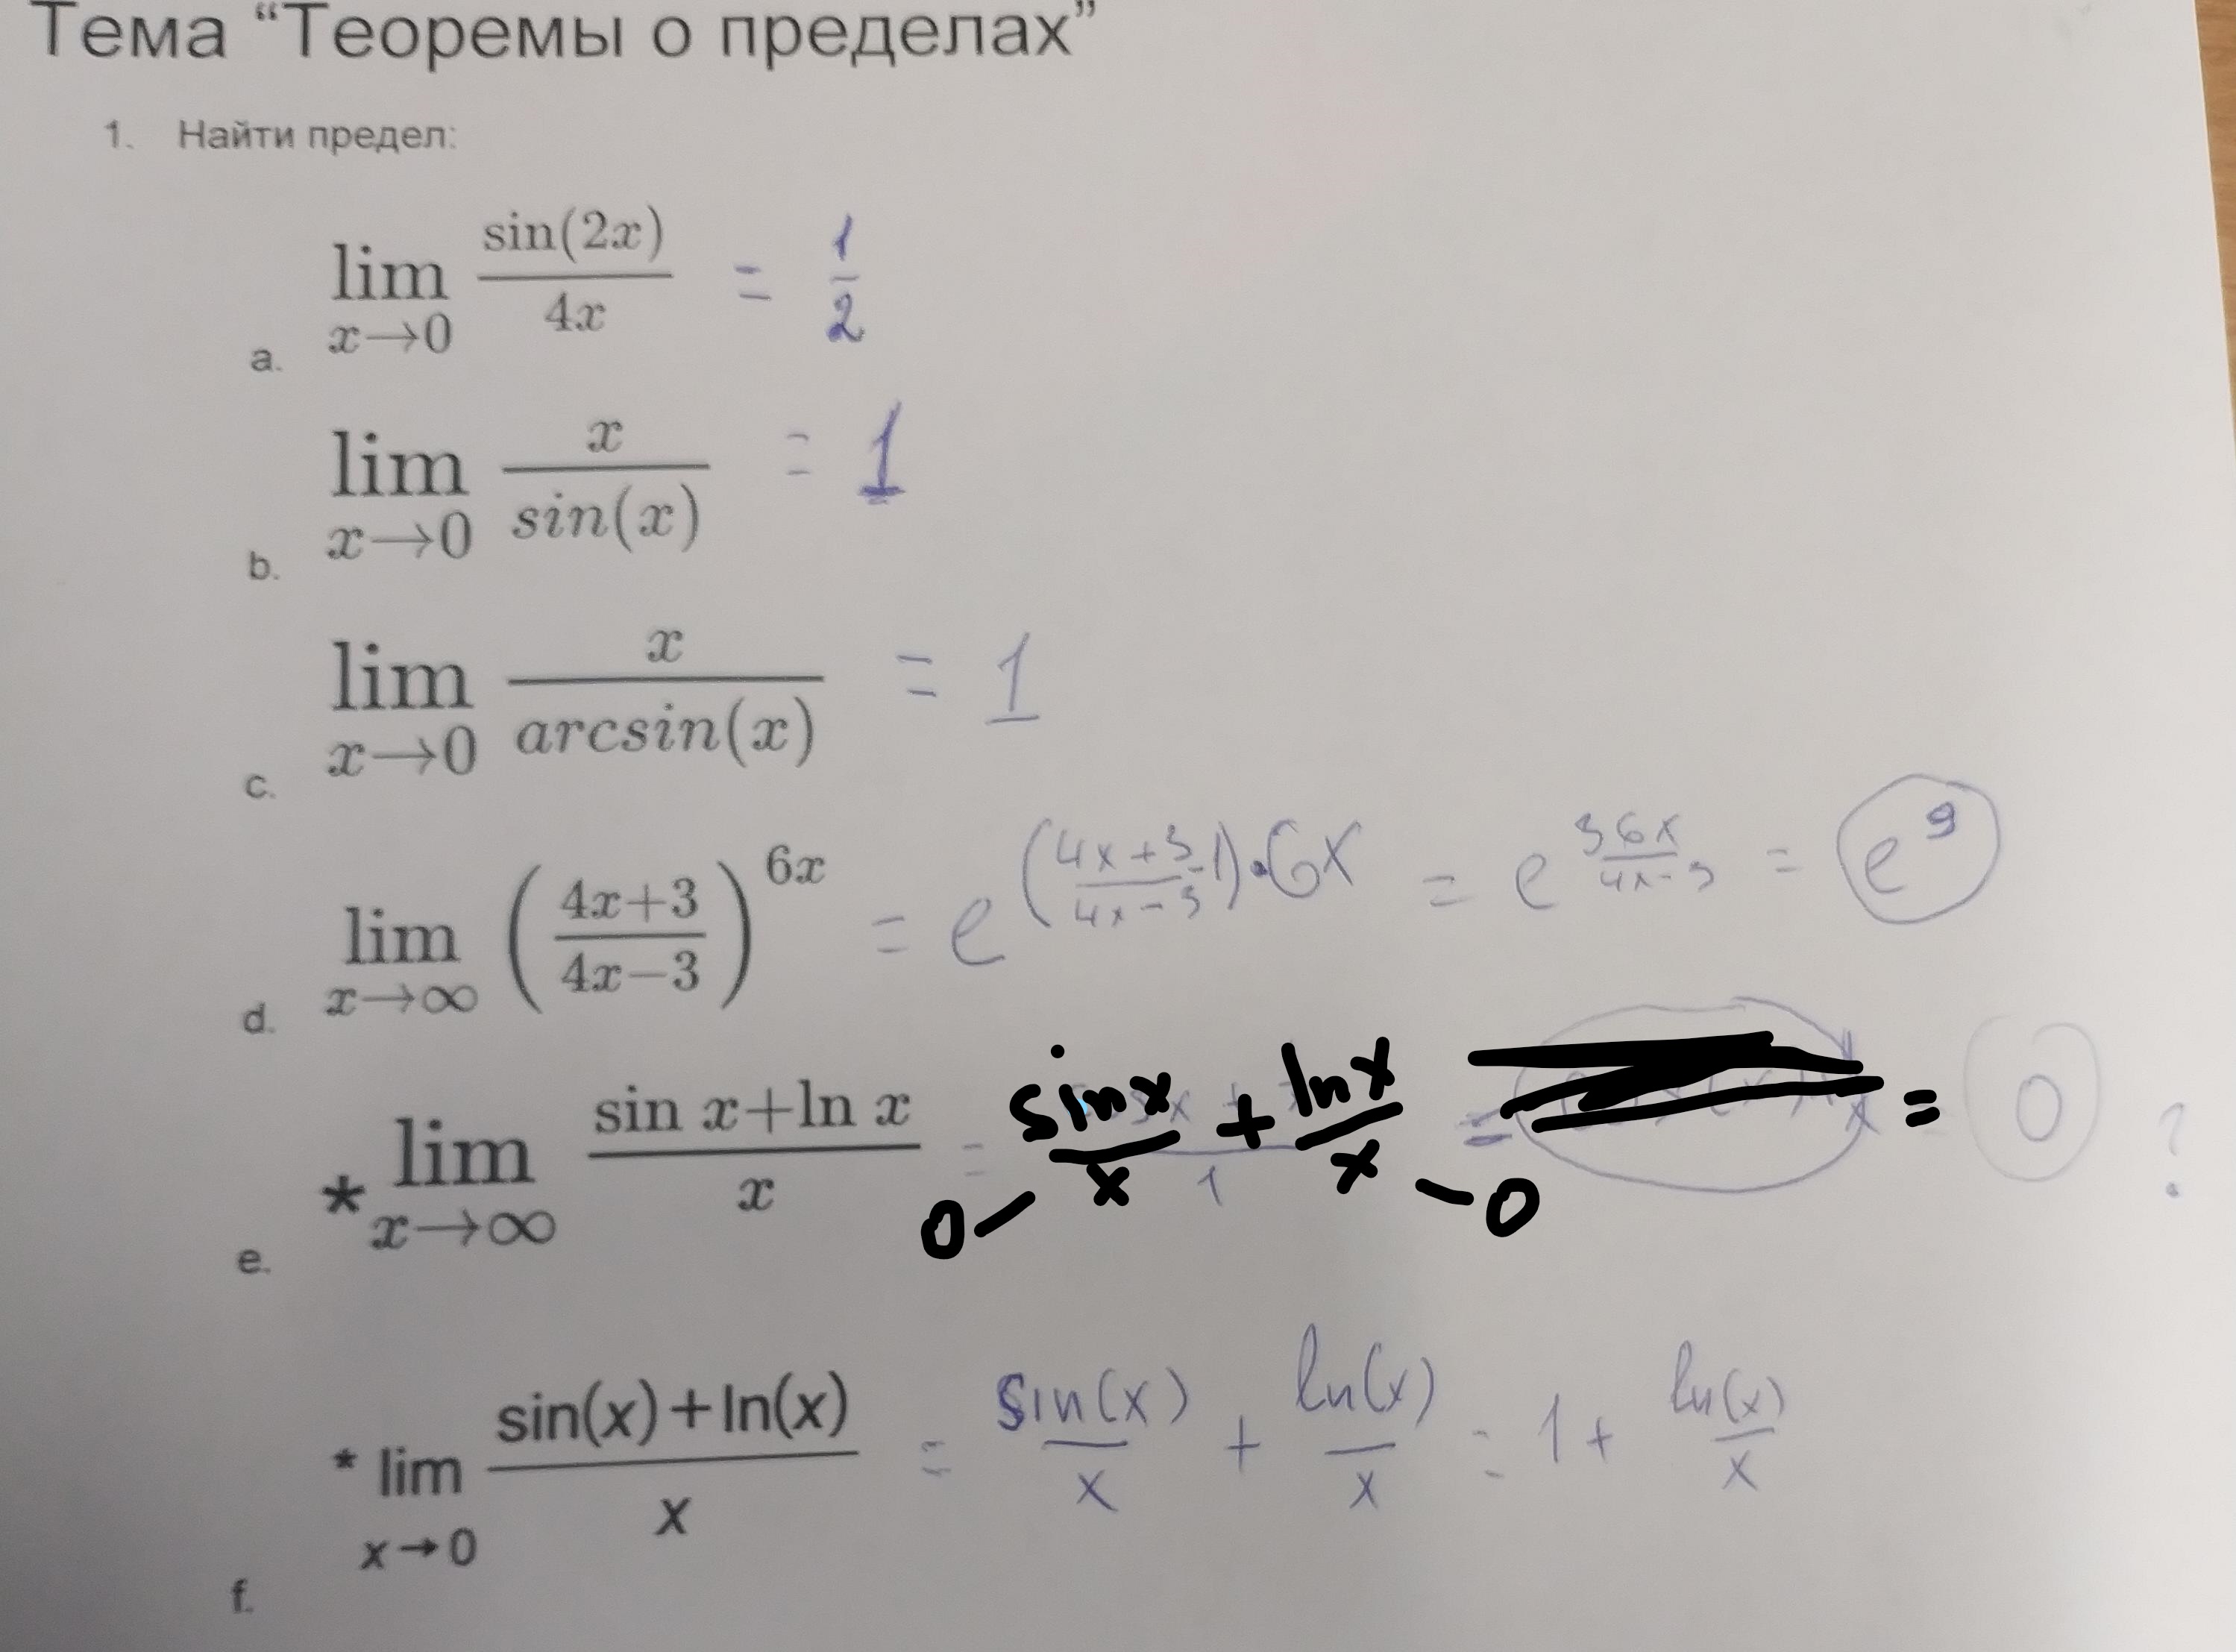 Тема “Теоремы о пределах”
1. Найти предел:
a. lim x→0 sin(2x)/4x = 1/2
b. lim x→0 x/sin(x) = 1
c. lim x→0 x/arcsin(x) = 1
d. lim x→∞ ((4x+3)/(4x−3))^6x = e^((4x+3)/(4x−3) −1)·6x = e^(36x/(4x−3)) = e^9
e. * lim x→∞ (sin x+ln x)/x = sinx/x + lnx/x = = 0 ?
0 — 1 — 0
f. * lim x→0 (sin(x)+ln(x))/x = sin(x)/x + ln(x)/x = 1 + ln(x)/x